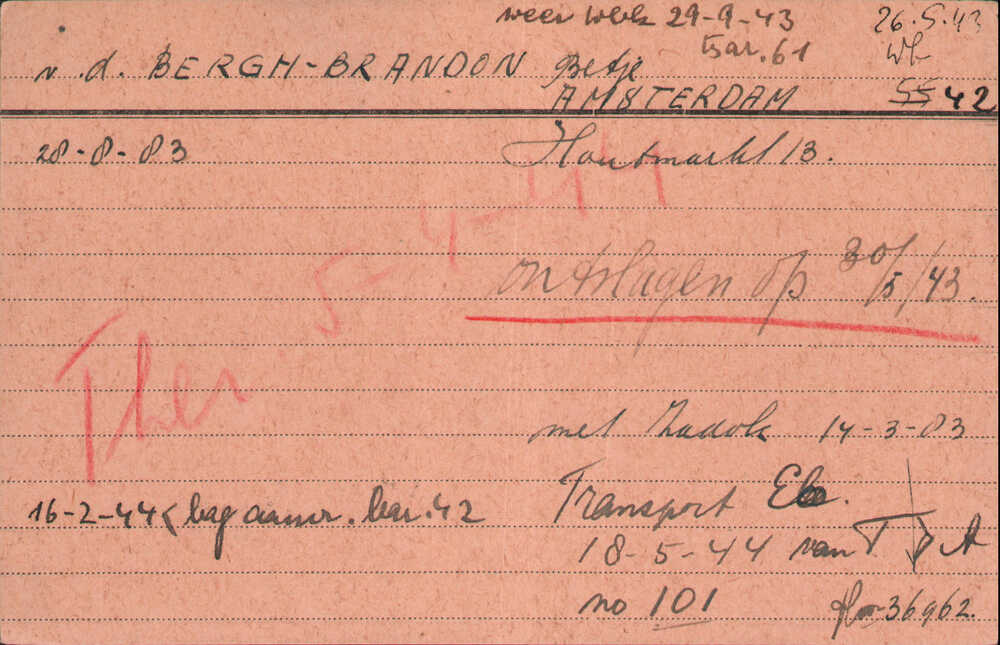 weer Wbk 29-9-43 26.5.43
Bar. 61 Wb
v.d. BERGH-BRANDON Betje
AMSTERDAM 55 42
28-8-83 Houtmarkt 13.
5-4-44
ontslagen op 30/5/43.
Ther.
met Zadok 14-3-83
16-2-44 bag bar. 42 Transport Eb.
18-5-44 van T A
no 101 36962.